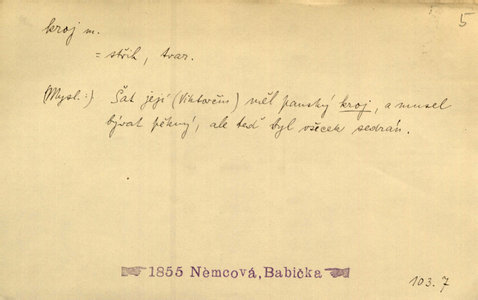 5
kroj m.
= střih, tvar.
(Mysl.:) Šat její (Viktorčin) měl panský kroj, a musel
bývat pěkný, ale teď byl všecek sedrán.
1855 Němcová, Babička
103. 7